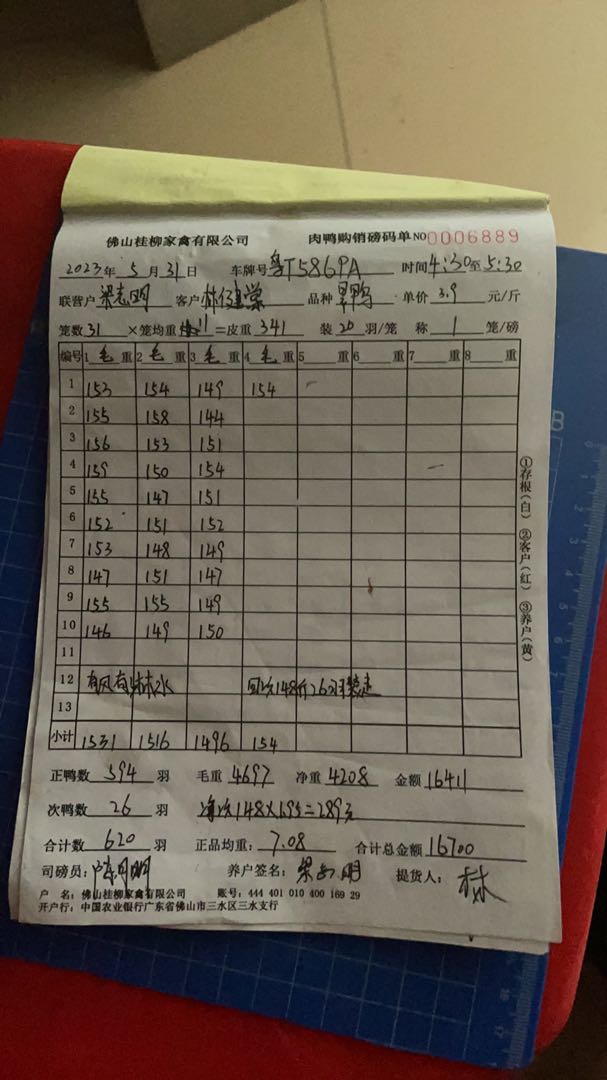 佛山桂柳家禽有限公司 肉鸭购销磅码单 NO 0006889
2023年 5月31日 车牌号 粤T5869A 时间 4:30至5:30
联营户 梁志明 客户 品种 旱鸭 单价 3.9 元/斤
笼数 31 ×笼均重 11 =皮重 341 装 20 羽/笼 称 1 笼/磅
编号 1 毛 重 2 毛 重 3 毛 重 4 毛 重 5 重 6 重 7 重 8 重
1 153 154 149 154
2 155 158 144
3 156 153 151
4 159 150 154
5 155 147 151
6 152 151 152
7 153 148 149
8 147 151 147
9 155 155 149
10 146 149 150
11
12 有风有 水 148斤26羽
13
小计 1531 1516 1496 154
正鸭数 594 羽 毛重 4697 净重 4208 金额 16411
次鸭数 26 羽 148×1.95=289元
合计数 620 羽 正品均重: 7.08 合计总金额 16700
司磅员: 养户签名: 梁志明 提货人: 林
户 名: 佛山桂柳家禽有限公司 账号: 444 401 010 400 169 29
开户行: 中国农业银行广东省佛山市三水区三水支行
①存根(白) ②客户(红) ③养户(黄)